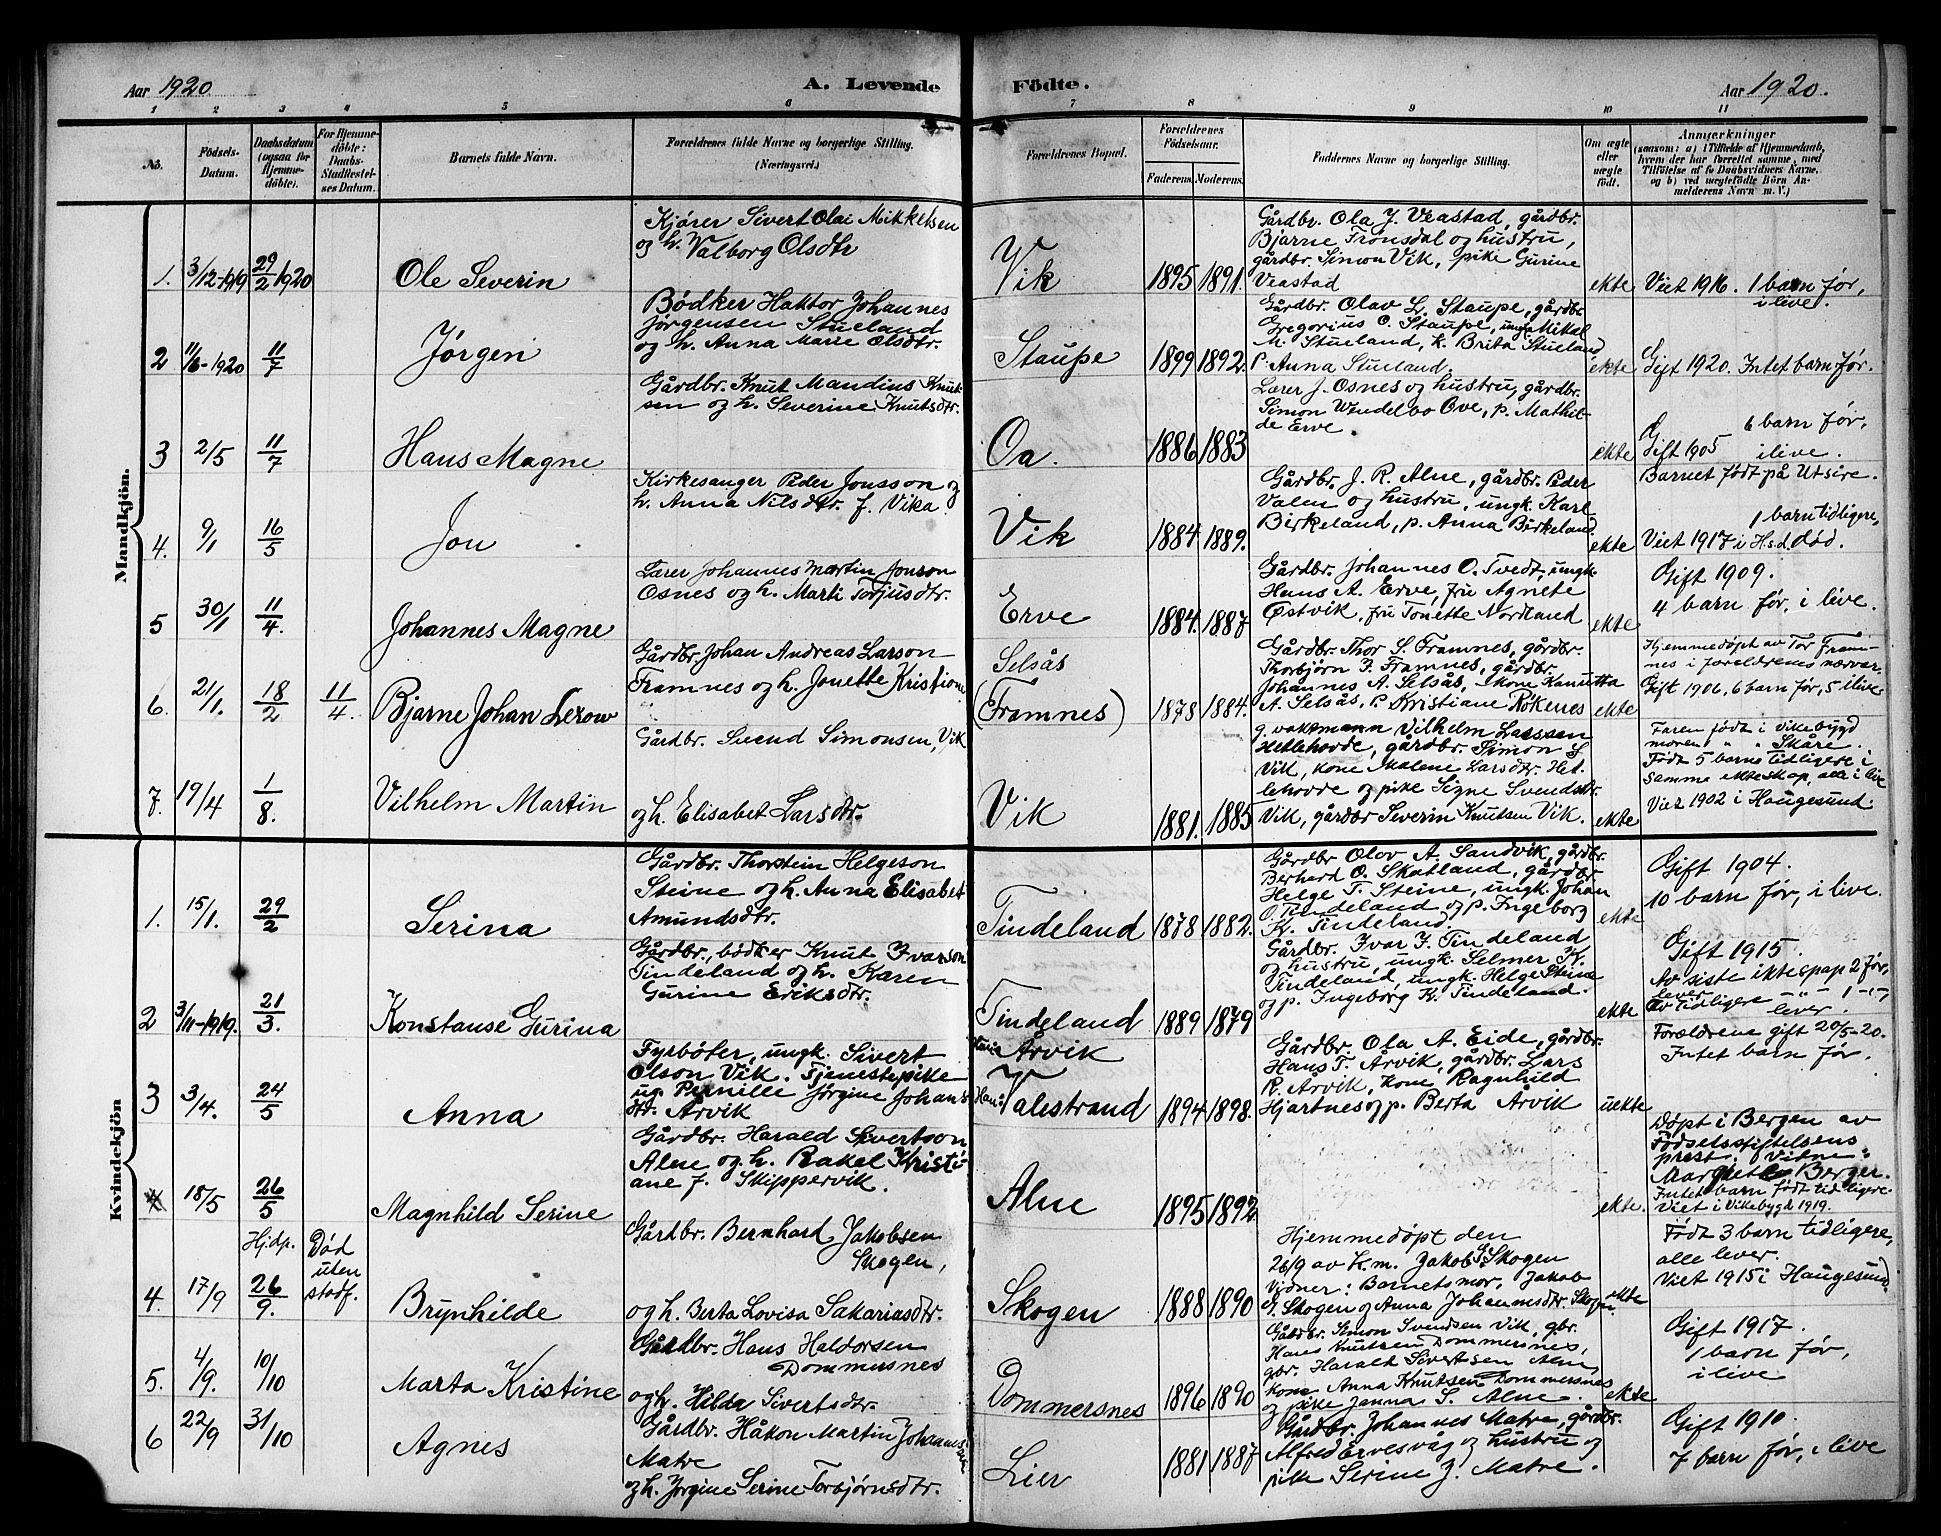 Aar 1920
A. Levende Födte.
Aar 1920.
1 2 3 4 5 6 7 8 9 10 11
No.
Födsels-Datum.
Daabsdatum (ogsaa for Hjemme-döbte).
For Hjemme-döbte: Daabs-Stadfestel-ses Datum.
Barnets fulde Navn.
Forældrenes fulde Navne og borgerlige Stilling. (Næringsvei.)
Forældrenes Bopæl.
Forældrenes Födselsaar.
Faderens. Moderens.
Faddernes Navne og borgerlige Stilling.
Om ægte eller uægte födt.
Anmærkninger
(saasom: a) i Tilfælde af Hjemmedaab, hvem der har forrettet samme, med Tilföielse af to Daabsvidners Navne, og b) ved uægtefödte Börn An-melderens Navn m. V.)
Mandkjön.
1. 3/12-1919 29/2 1920
Ole Severin
Kjører Sivert Olai Mikkelsen
og h. Valborg Olsdtr
Vik
1895 1891.
Gårdbr. Ola J. Veastad, gårdbr.
Bjarne Tronsdal og hustru,
gårdbr. Simon Vik, pike Gurine
Veastad
ekte
Viet 1916. 1 barn før,
i live.
2 11/6-1920 11/7
Jørgen
Bødker Haktor Johannes
Jørgensen Stueland
og h. Anna Marie Olsdtr.
Staupe
1899 1892.
Gårdbr. Olav L. Staupe, gårdbr.
Gregorius O. Staupe, ungk. Mikal
M. Stueland, k. Brita Stueland
p. Anna Stueland.
ekte
Gift 1920. Intet barn før.
3 2/5 11/7
Hans Magne
Gårdbr. Knut Mandius Knut-
sen og h. Severine Knutsdtr.
Oa.
1886 1883
Lærer J. Osnes og hustru, gårdbr.
Simon Wendelbo Ove, p. Mathil-
de Erve
ekte
6 barn før,
Gift 1905 i live.
Barnet født på Utsire.
4. 9/1 16/5
Jon
Kirkesanger Peder Jonsson og
h. Anna Nilsdtr. f. Vika
Vik
1884. 1889.
Gårdbr. J. R. Alne, gårdbr. Peder
Valen og hustru, ungk. Karl
Birkeland, p. Anna Birkeland.
ekte
1 barn tidligere,
Viet 1917 i H.s.d. død.
5 30/1 11/4.
Johannes Magne
Lærer Johannes Martin Jonson
Osnes og h. Marti Torjusdtr.
Erve
1884. 1887
Gårdbr. Johannes O. Tvedt, ungk.
Hans A. Erve, fru Agnete
Østvik, fru Tonette Nordland
ekte
Gift 1909.
4 barn før, i live.
6. 21/1. 18/2 11/4.
Bjarne Johan Lexow
Gårdbr. Johan Andreas Larson
Framnes og h. Jonette Kristione
Selsås
(Framnes)
1878 1884.
Gårdbr. Thor S. Framnes, gårdbr.
Thorbjørn J. Framnes, gårdbr.
Johannes A. Selsås, kone Kanutta
A. Selsås, p. Kristiane Røkenes
ekte
Hjemmedøpt av Tor Fram-
nes i foreldrenes nærvær.
Gift 1906, 6 barn før, 5 i live
7. 19/4 1/8.
Vilhelm Martin
Gårdbr. Svend Simonsen, Vik
og h. Elisabet Larsdtr.
Vik
1881. 1885
g. vaktmann Vilhelm Larssen
Hetlehovde, gårdbr. Simon S
Vik, kone Malene Larsdtr. Het-
lehovde og pike Signe Svendsdtr.
Vik, gårdbr Severin Knutsen Vik.
ekte
Faren født i Vikebygd
moren " " Skåre.
Født 5 barn tidligere i
samme ekteskap, alle i live
Viet 1902 i Haugesund.
Kvindekjön
1. 15/1. 29/2
Serina
Gårdbr. Thorstein Helgeson
Steine og h. Anna Elisabet
Amundsdtr.
Tindeland
1878 1882.
Gårdbr Olav A. Sandvik, gårdbr.
Berhard O. Skatland, gårdbr
Helge T. Steine, ungk. Johan
O. Tindeland og p. Ingeborg
K. Tindeland.
ekte
Gift 1904.
10 barn før, i live.
2 3/11-1919. 21/3.
Konstanse Gurina
Gårdbr., bødker Knut Ivarson
Tindeland og h. Karen
Gurine Eriksdtr.
Tindeland
1889 1879
Gårdbr. Ivar I. Tindeland
og hustru, ungk. Selmer K.
Tindeland, ungk. Helge Steine
og p. Ingeborg K. Tindeland.
ekte
Gift 1915.
Av siste ektespap 2 før,
lever.
Av tidligere - " - 1 - " -
lever.
3 3/4. 24/5
Anna
Fyrbøter, ungk. Sivert
Olson Vik. Tjenestepike
ug. Pernille Jørgine Johans
dtr. Arvik
Arvik
Han: Valestrand
1894 1898.
Gårdbr. Ola A. Eide, gårdbr.
Hans T. Arvik, gårdbr. Lars
R. Arvik, kone Ragnhild
Hjartnes og p. Berta Arvik
uekte
Forældrene gift 20/5-20.
Intet barn før.
18/5 26/5
Magnhild Serine
Gårdbr. Harald Sivertson
Alne og h. Rakel Kristi-
ane f. Skippervik.
Alne
1895 1892
ekte.
Døpt i Bergen av
Fødselsstiftelsens
prest. Vitne:
Berger.
Intet barn født tidligere
Viet i Vikebygd 1919.
4. 17/9 Hjdp. 26/9. Død uten stadf.
Brynhilde
Gårdbr. Bernhard Jakobsen
Skogen,
og h. Berta Lovisa Sakariasdtr.
Skogen
1888 1890
Hjemmedøpt den
26/9 av k.m. Jakob S. Skogen
Vidner: Barnets mor, Jakob
S. Skogen og Anna Johannesdtr. Skogen
ekte
Født 3 barn tidligere,
alle lever.
Viet 1915 i Haugesund
5. 4/9. 10/10
Marta Kristine
Gårdbr. Hans Haldorsen
Dommersnes
og h. Hilda Sivertsdtr.
Dommersnes
1896 1890
Gårdbr. Simon Svendsen Vik, gbr.
Hans Knutsen Dommersnes,
gbr. Harald Sivertsen Alne,
kone Anna Knutsen Dommersnes
og pike Janna S. Alne.
ekte
Gift 1917.
1 barn før,
i live
6 22/9 31/10
Agnes
Gårdbr. Håkon Martin Johannes
Matre
og h. Jørgine Serine Torbjørnsdtr.
Lier
1881 1887
Gårdbr. Johannes Matre, gårdbr.
Alfred Ervesvåg og hustru og
pike Serine J. Matre.
Gift 1910.
7 barn før, i live